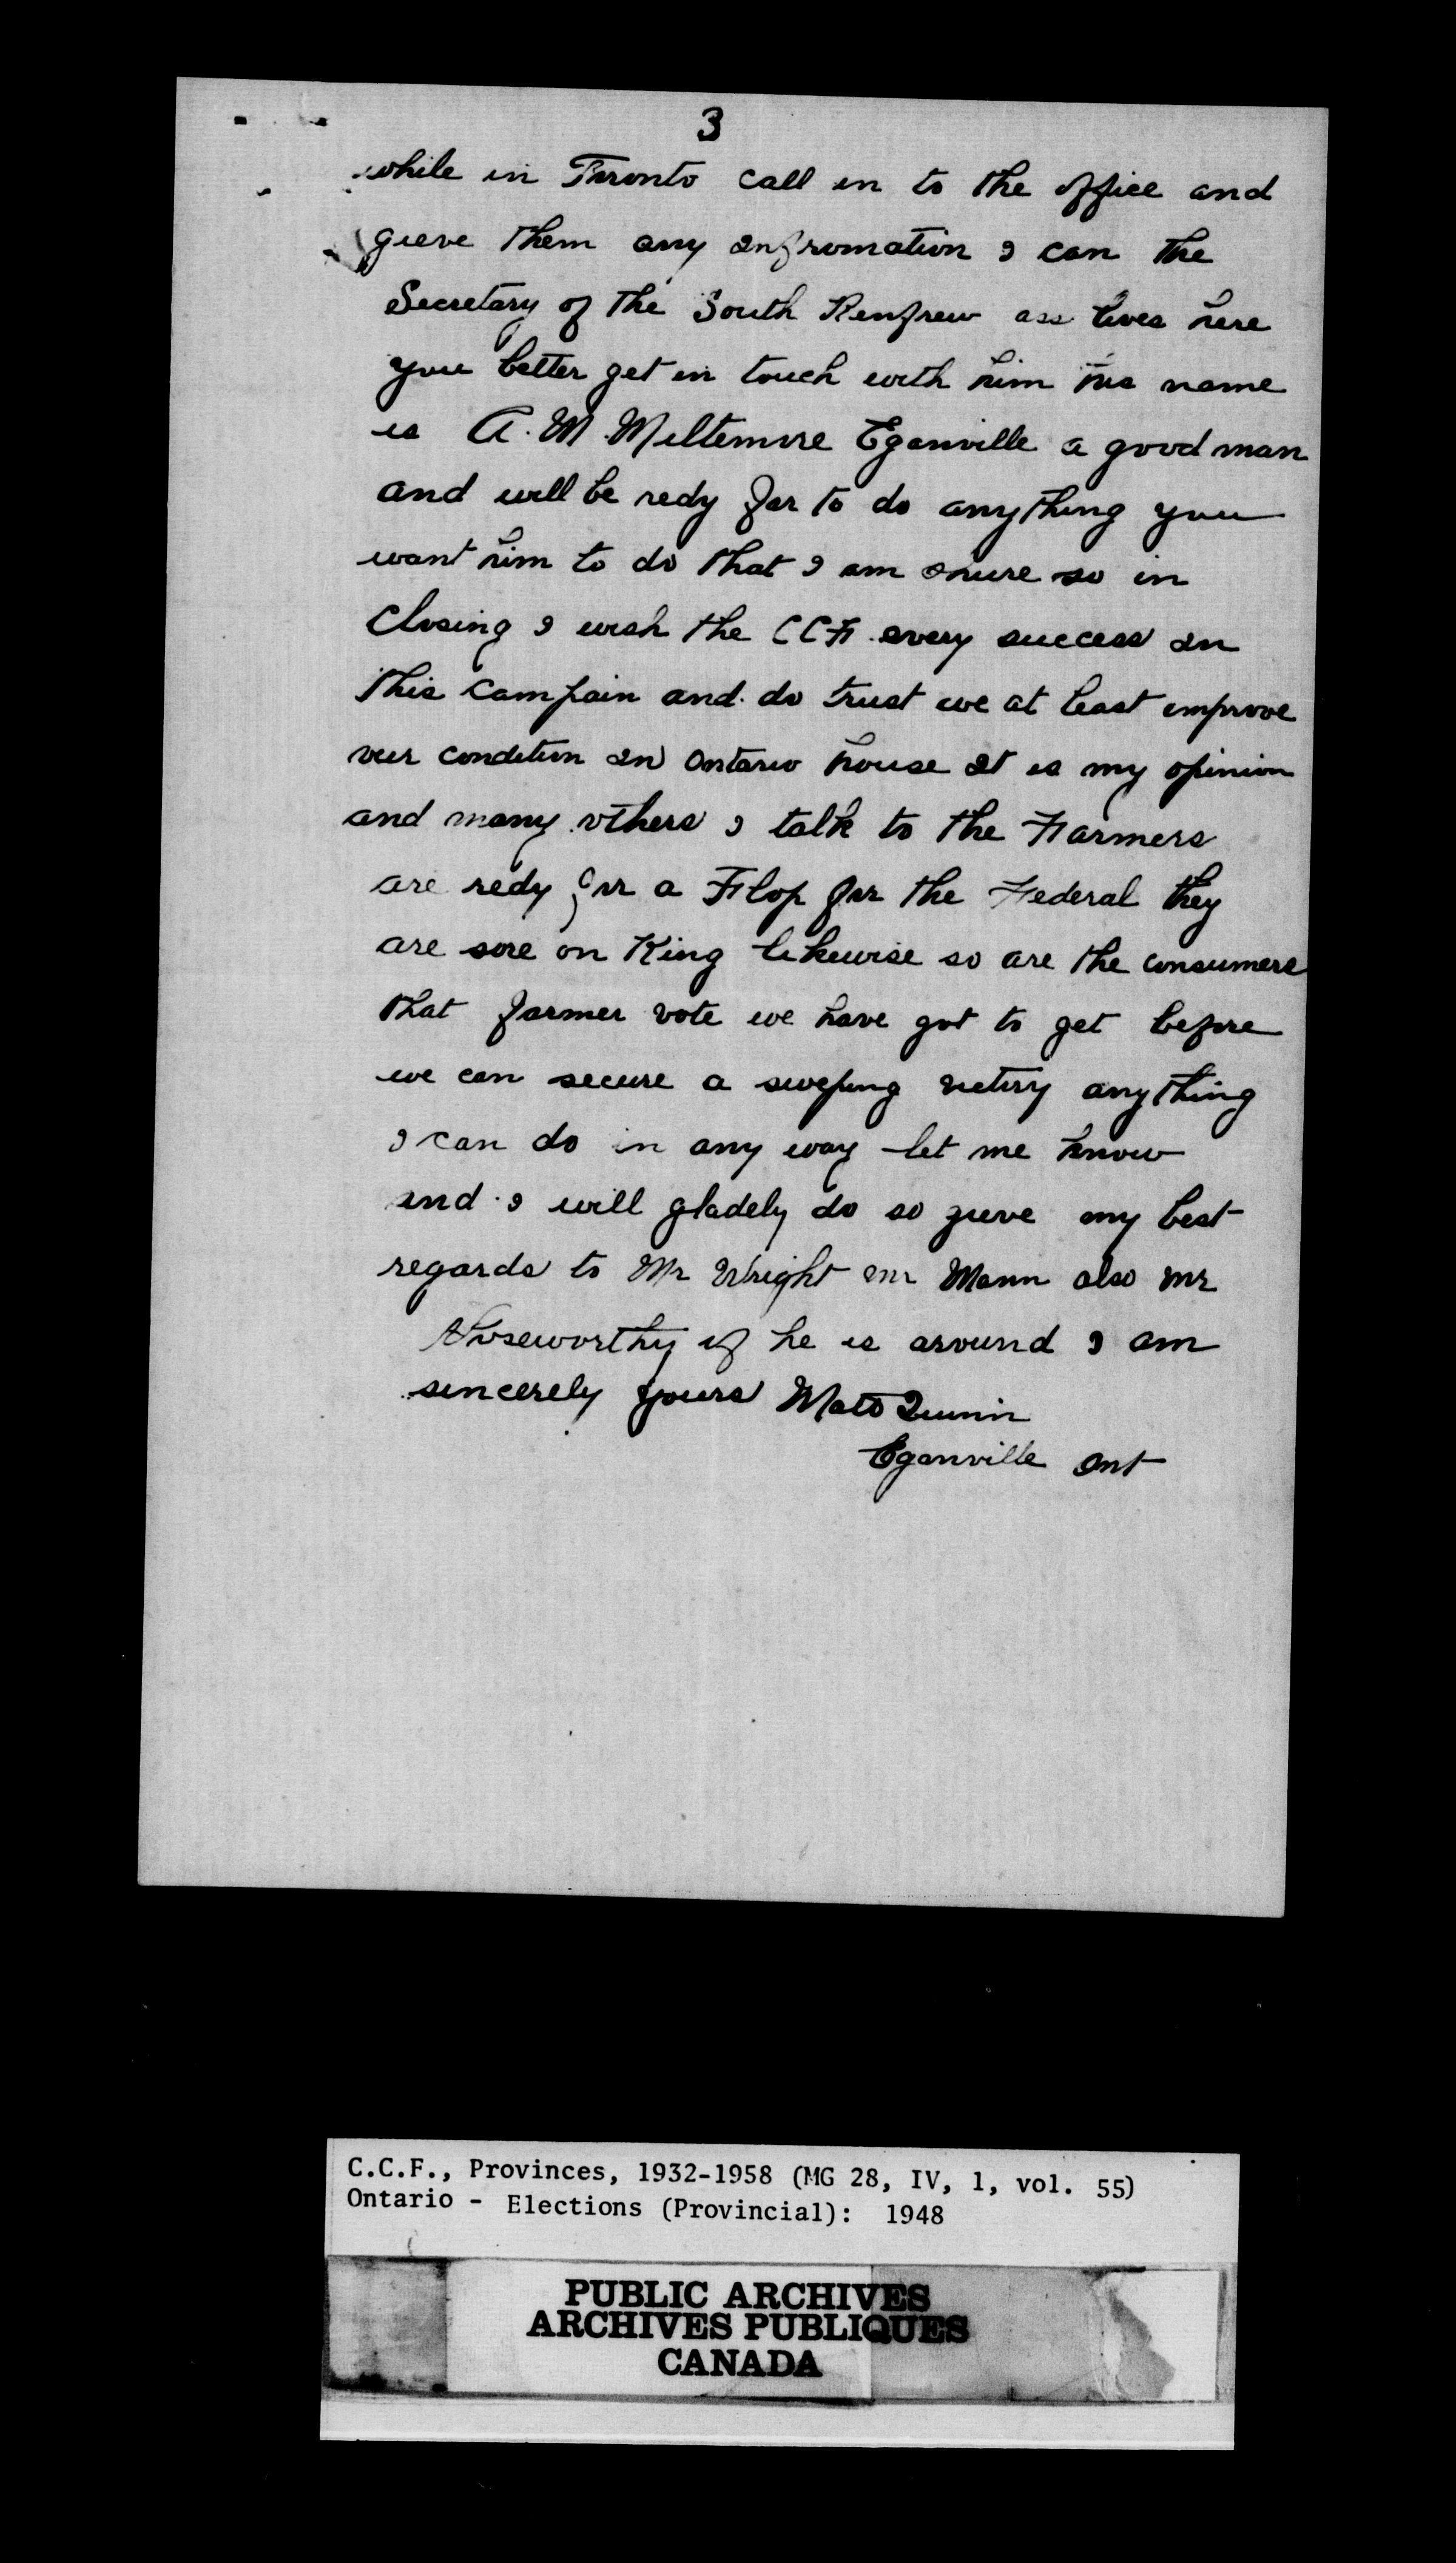 3
while in Toronto call in to the office and
gieve them any infromation I can the
Secretary of the South Renfrew ass lives here
you better get in touch with him his name
is A. M. Miltemore Eganville a good man
and will be redy for to do anything you
want him to do that I am shure so in
Closing I wish the CCF every success in
this Campain and do trust we at least improve
our condition in Ontario house It is my opinion
and many others I talk to the Farmers
are redy for a Flop for the Federal they
are sore on King likewise so are the consumers
that farmer vote we have got to get before
we can secure a sweping victory anything
I can do in any way let me know
and I will gladely do so gieve my best
regards to Mr Wright mr Mann also mr
Noseworthy if he is around I am
sincerely yours Quinn
Eganville Ont
C.C.F., Provinces, 1932-1958 (MG 28, IV, 1, vol. 55)
Ontario - Elections (Provincial): 1948
PUBLIC ARCHIVES
ARCHIVES PUBLIQUES
CANADA